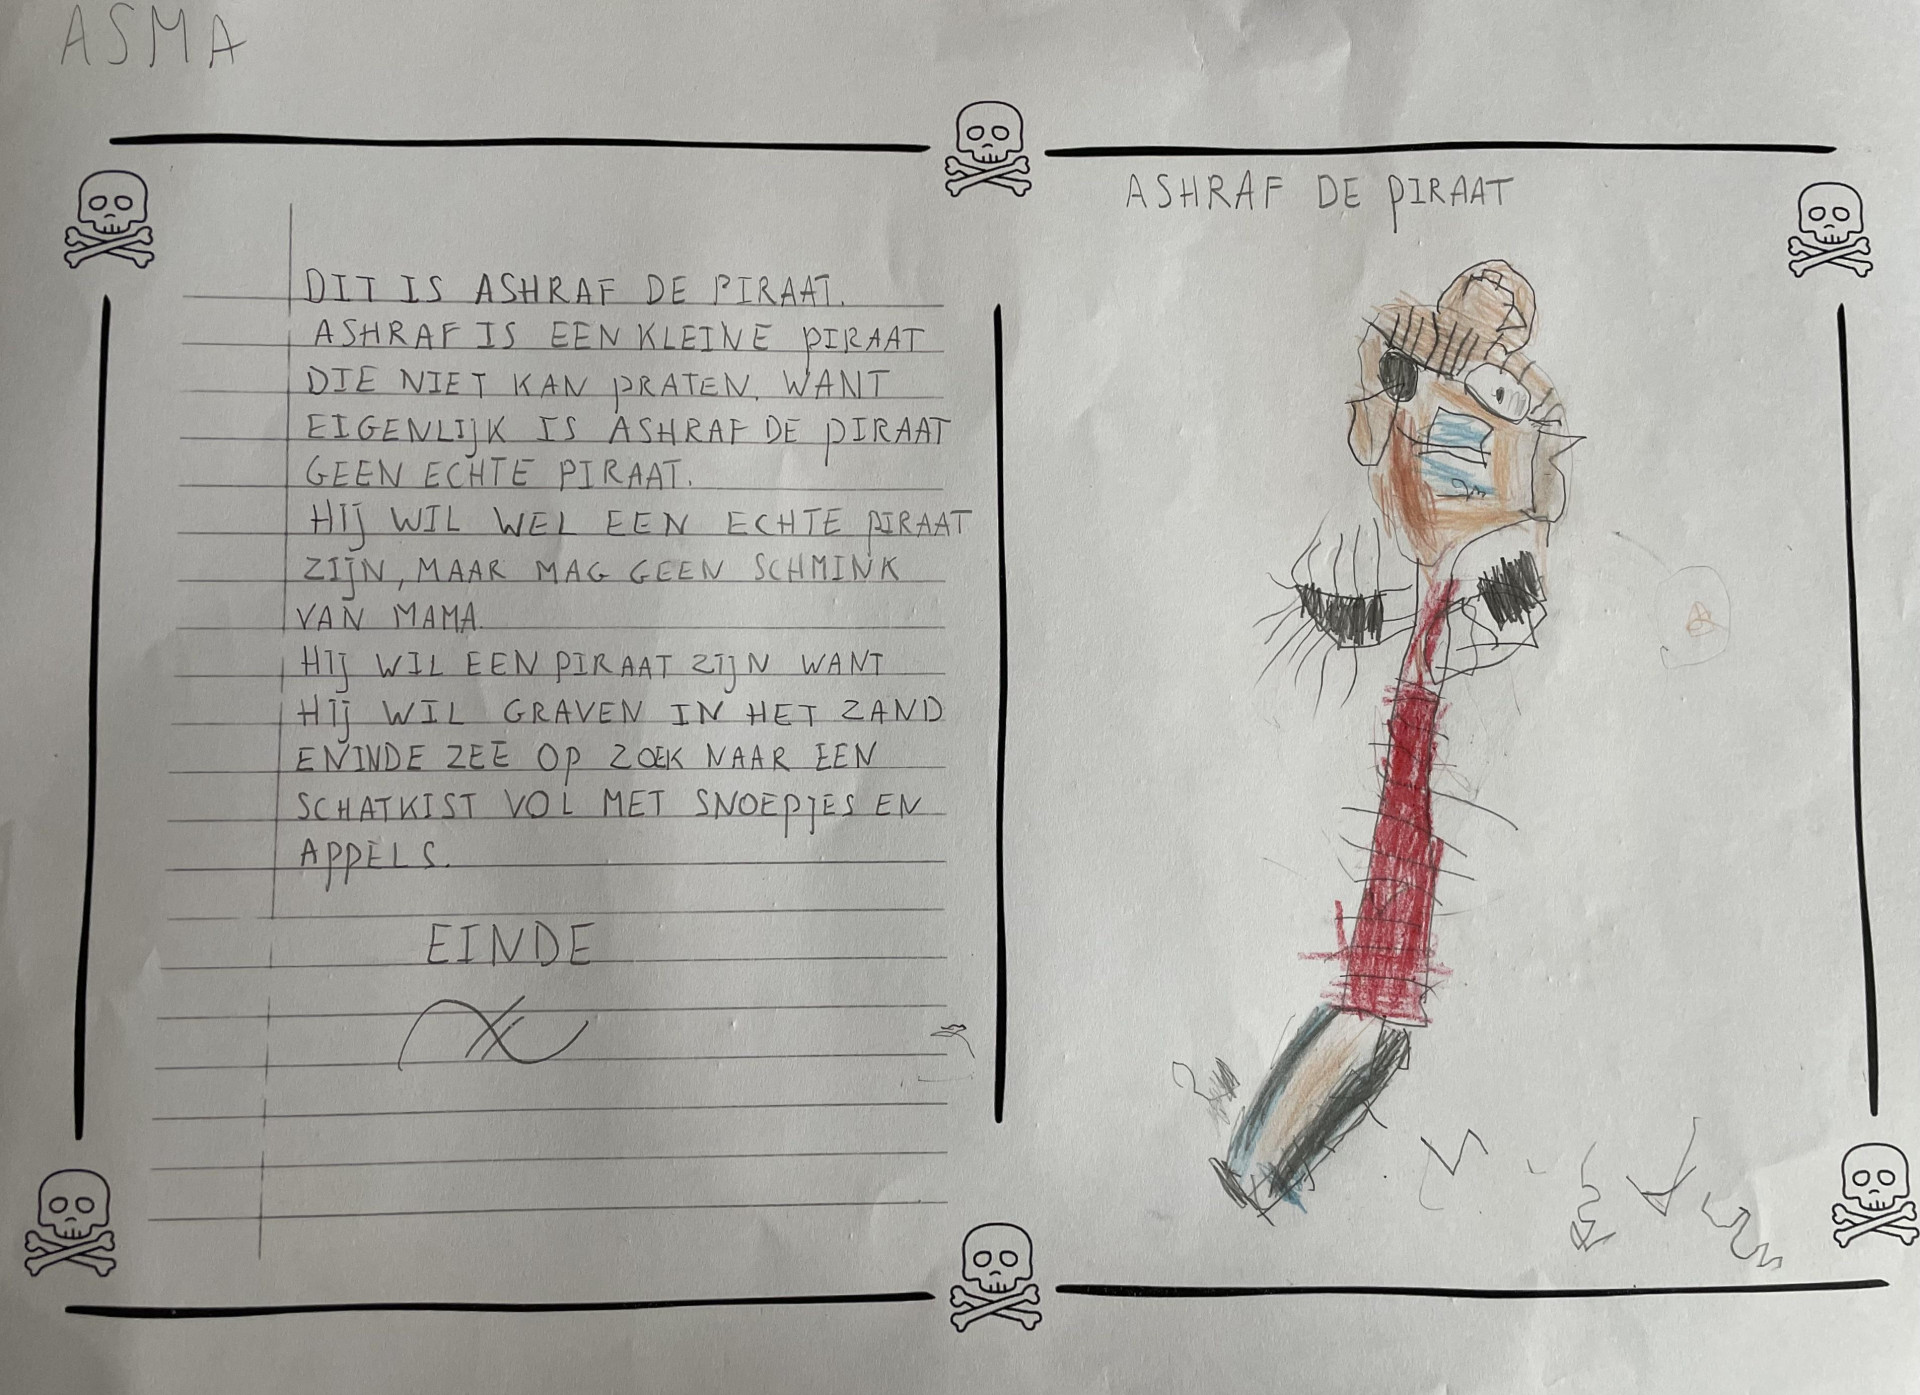 ASMA
DIT IS ASHRAF DE PIRAAT.
ASHRAF IS EEN KLEINE PIRAAT
DIE NIET KAN PRATEN. WANT
EIGENLIJK IS ASHRAF DE PIRAAT
GEEN ECHTE PIRAAT.
HIJ WIL WEL EEN ECHTE PIRAAT
ZIJN, MAAR MAG GEEN SCHMINK
VAN MAMA.
HIJ WIL EEN PIRAAT ZIJN WANT
HIJ WIL GRAVEN IN HET ZAND
EN INDE ZEE OP ZOEK NAAR EEN
SCHATKIST VOL MET SNOEPJES EN
APPELS.
EINDE
ASHRAF DE PIRAAT